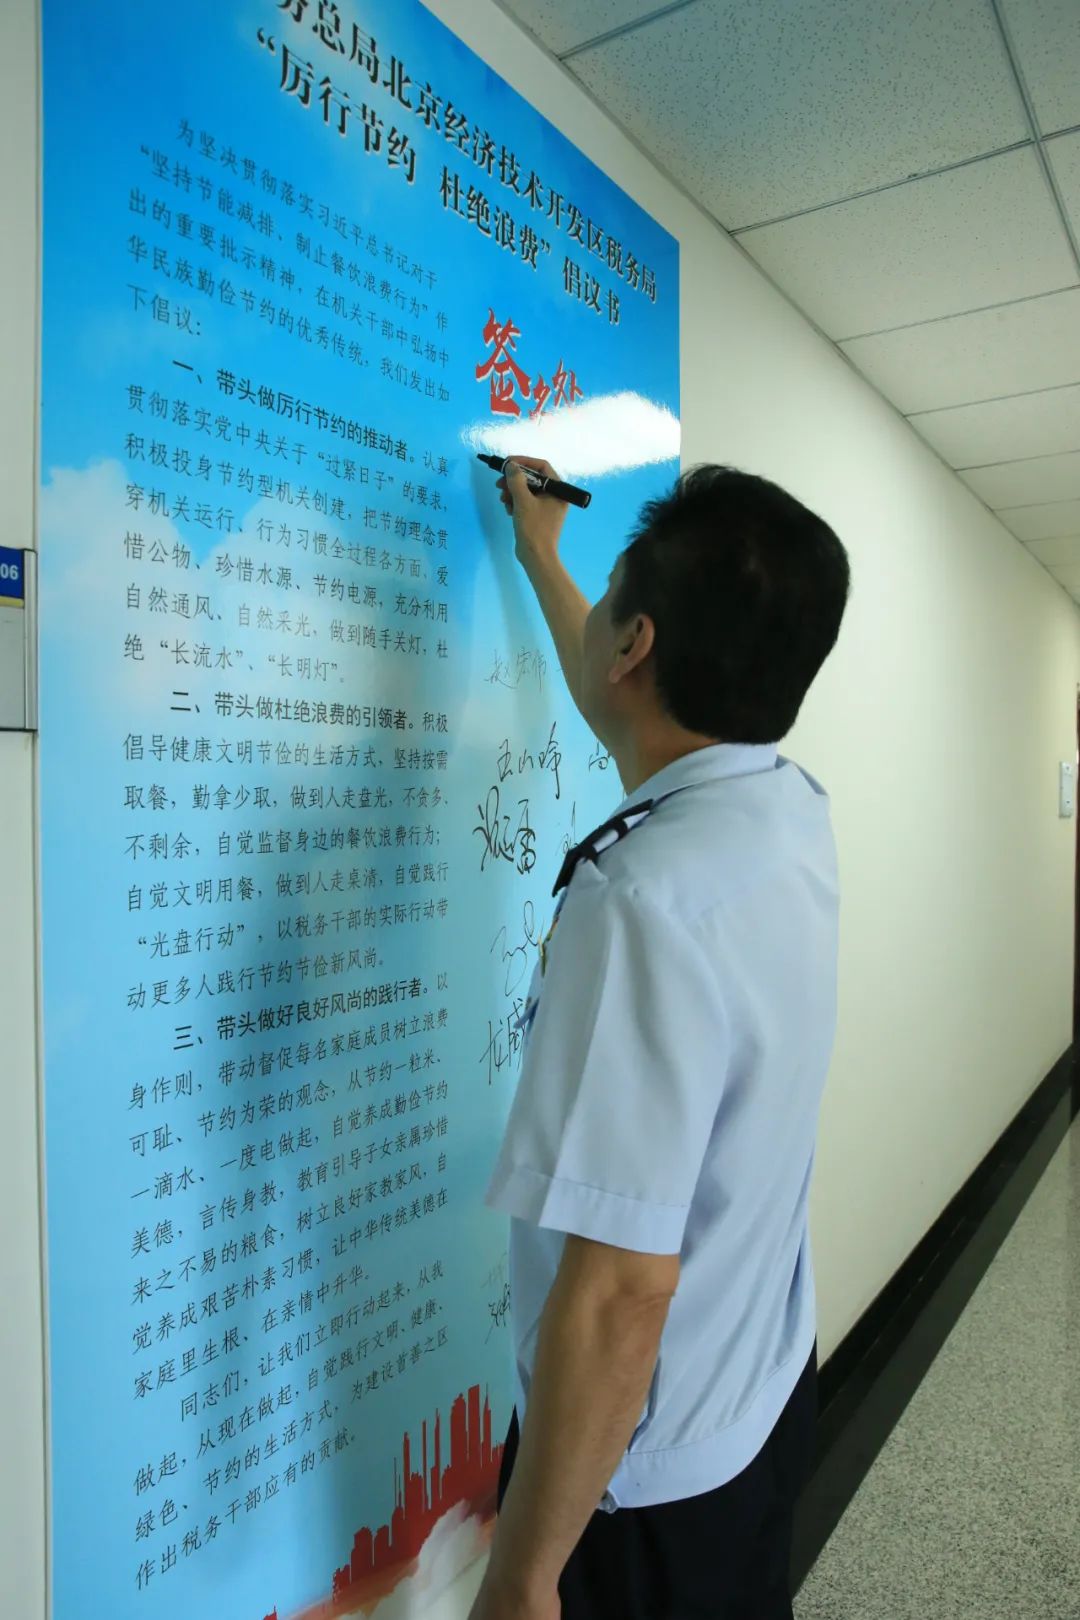 务总局北京经济技术开发区税务局
“厉行节约 杜绝浪费”倡议书
为坚决贯彻落实习近平总书记对于
“坚持节能减排、制止餐饮浪费行为”作
出的重要批示精神，在机关干部中弘扬中
华民族勤俭节约的优秀传统，我们发出如
下倡议：
一、带头做厉行节约的推动者。认真
贯彻落实党中央关于“过紧日子”的要求，
积极投身节约型机关创建，把节约理念贯
穿机关运行、行为习惯全过程各方面、爱
惜公物、珍惜水源、节约电源，充分利用
自然通风、自然采光，做到随手关灯，杜
绝“长流水”、“长明灯”。
二、带头做杜绝浪费的引领者。积极
倡导健康文明节俭的生活方式，坚持按需
取餐，勤拿少取，做到人走盘光，不贪多、
不剩余，自觉监督身边的餐饮浪费行为；
自觉文明用餐，做到人走桌清，自觉践行
“光盘行动”，以税务干部的实际行动带
动更多人践行节约节俭新风尚。
三、带头做好良好风尚的践行者。以
身作则，带动督促每名家庭成员树立浪费
可耻、节约为荣的观念，从节约一粒米、
一滴水、一度电做起，自觉养成勤俭节约
美德，言传身教，教育引导子女亲属珍惜
来之不易的粮食，树立良好家教家风，自
觉养成艰苦朴素习惯，让中华传统美德在
家庭里生根、在亲情中升华。
同志们，让我们立即行动起来，从我
做起，从现在做起，自觉践行文明、健康、
绿色、节约的生活方式，为建设首善之区
作出税务干部应有的贡献。
签名处
赵宏伟
王山峥
龙威
06